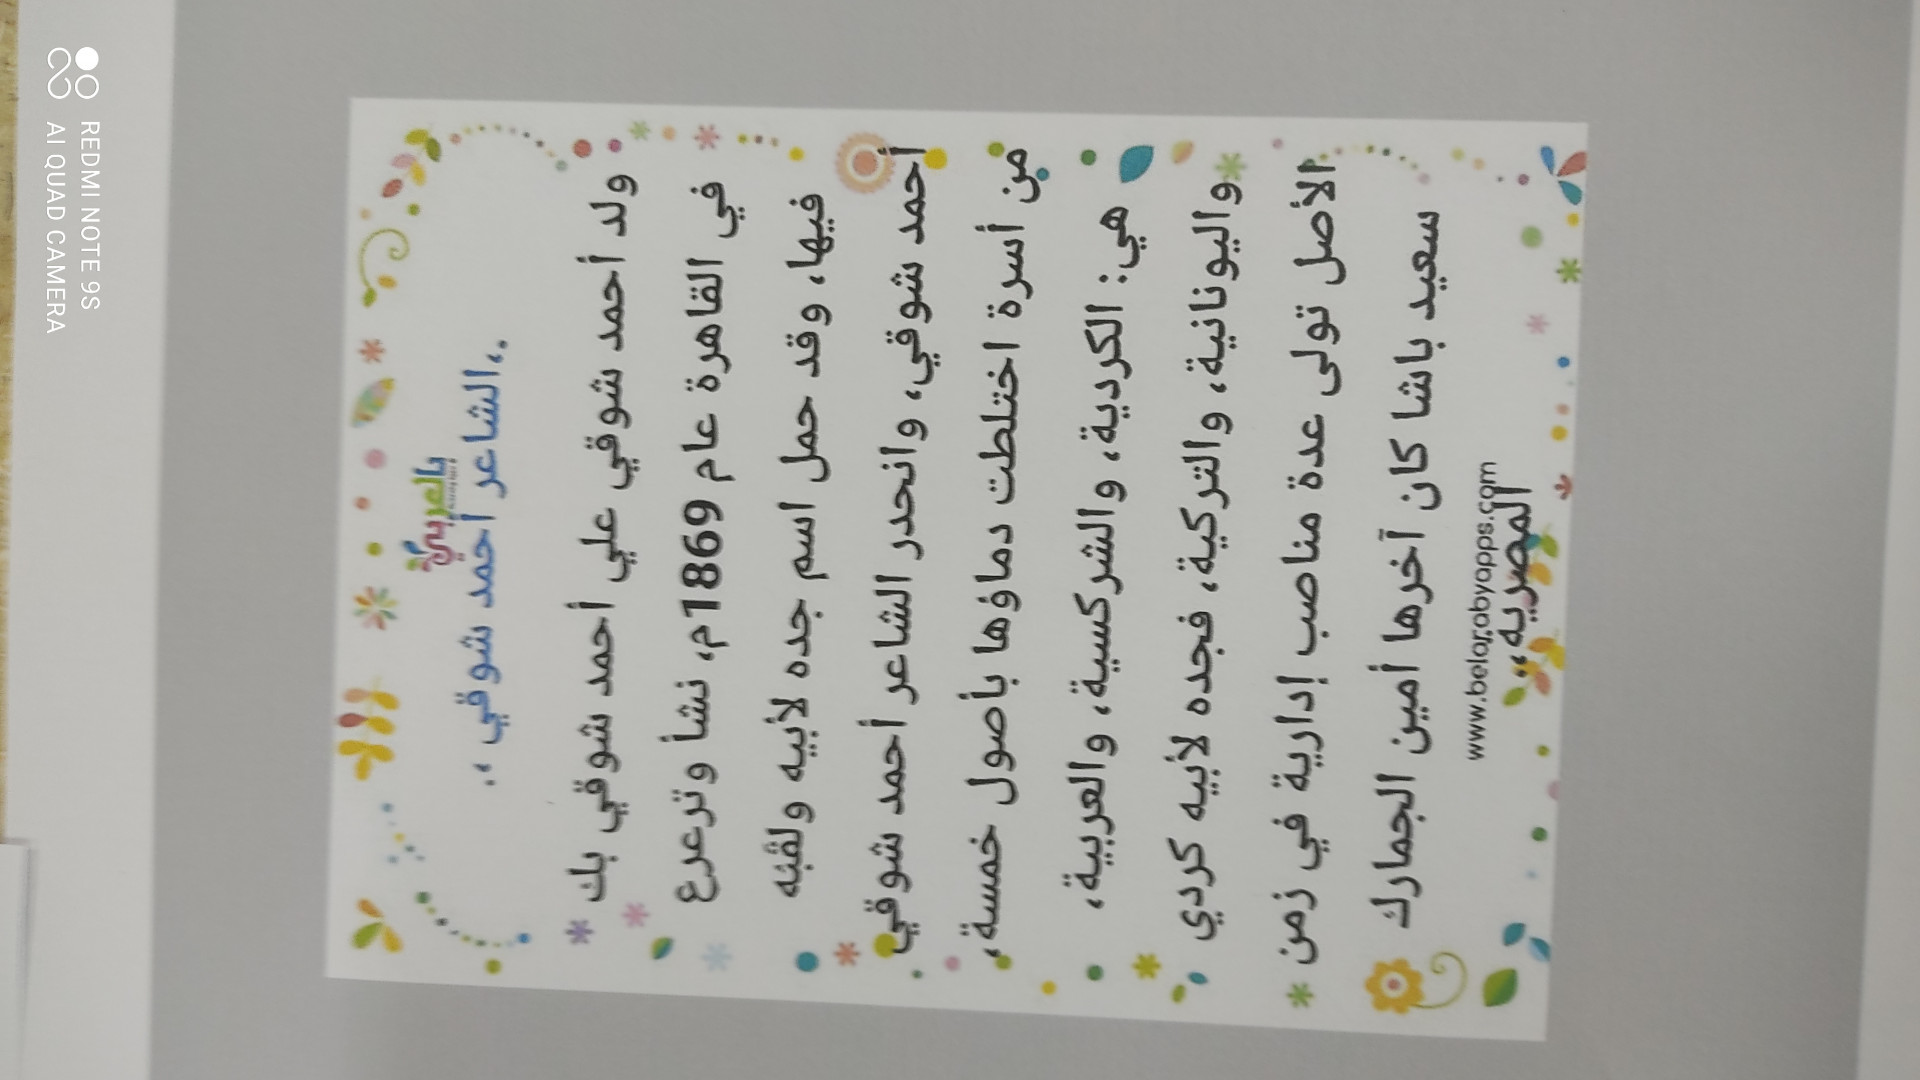 بالعربي
،.الشاعر أحمد شوقي ،.
ولد أحمد شوقي علي أحمد شوقي بك
في القاهرة عام 1869م، نشأ وترعرع
فيها، وقد حمل اسم جده لأبيه ولقبه
أحمد شوقي، وانحدر الشاعر أحمد شوقي
من أسرة اختلطت دماؤها بأصول خمسة،
هي: الكردية، والشركسية، والعربية،
واليونانية، والتركية، فجده لأبيه كردي
الأصل تولى عدة مناصب إدارية في زمن
سعيد باشا كان آخرها أمين الجمارك
www.belarabyapps.com
المصرية،،
REDMI NOTE 9S
AI QUAD CAMERA